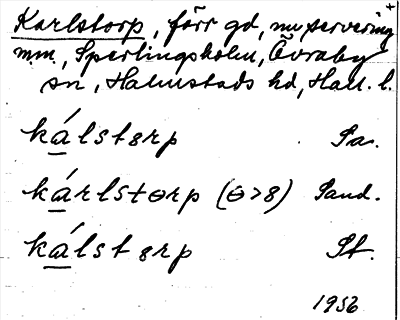 Karlstorp, förr gd, nu servering
mm, Sperlingsholm, Övraby
sn, Halmstads hd, Hall. l.
kálstȣrp Sa.
kárlstɵrp (ɵ>ȣ) Sand.
kálstȣrp St.
1956